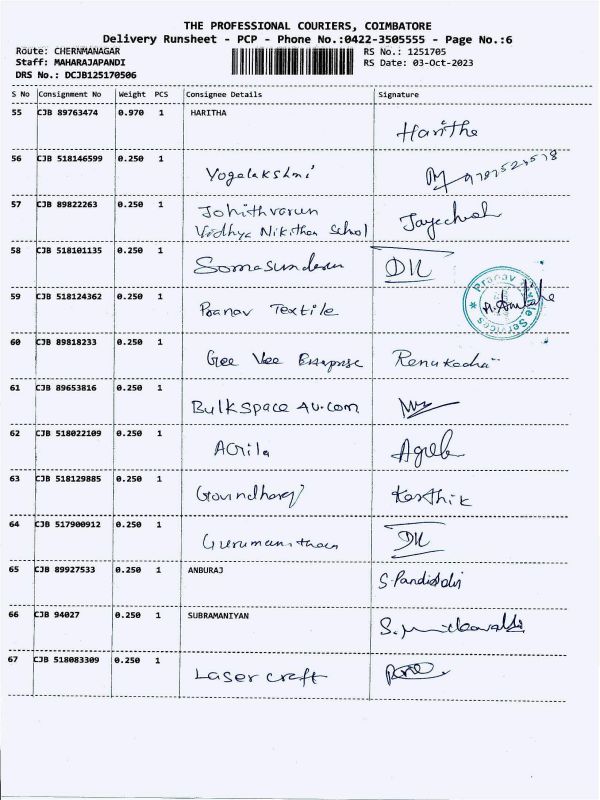 THE PROFESSIONAL COURIERS, COIMBATORE
Delivery Runsheet - PCP - Phone No.:0422-3505555 - Page No.:6
Route: CHERNMANAGAR RS No.: 1251705
Staff: MAHARAJAPANDI RS Date: 03-Oct-2023
DRS No.: DCJB125170506
S No Consignment No Weight PCS Consignee Details Signature
55 CJB 89763474 0.970 1 HARITHA
Haritha
56 CJB 518146599 0.250 1
Yogalakshmi
57 CJB 89822263 0.250 1
Johithvarun
Vidhya Nikithan School
58 CJB 518101135 0.250 1
Somasundaram DIL
59 CJB 518124362 0.250 1
Pranav Textile
Pranav Services
60 CJB 89818233 0.250 1
Gee Vee Enterprise Renukadha
61 CJB 89653816 0.250 1
Bulkspace Au.com
62 CJB 518022109 0.250 1
63 CJB 518129885 0.250 1
Govindharaj Karthik
64 CJB 517900912 0.250 1
DIL
65 CJB 89927533 0.250 1 ANBURAJ
66 CJB 94027 0.250 1 SUBRAMANIYAN
67 CJB 518083309 0.250 1
Laser craft